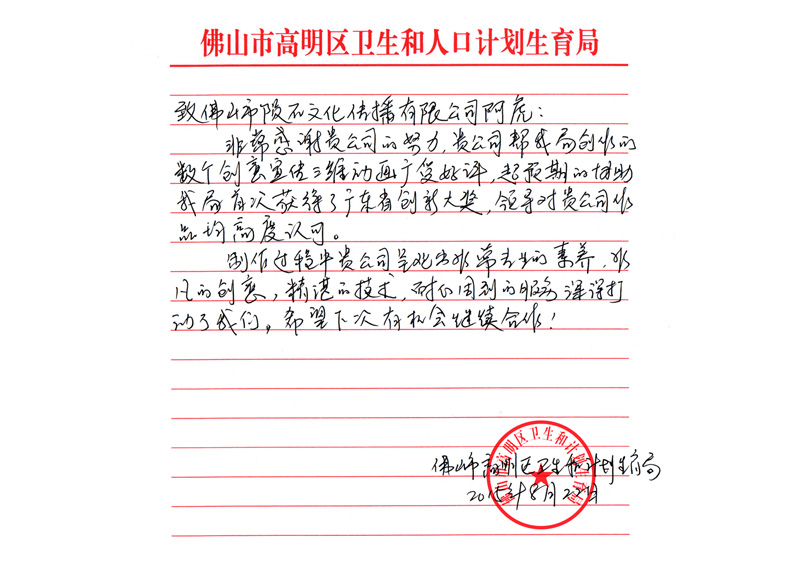 佛山市高明区卫生和人口计划生育局
致佛山市陨石文化传播有限公司阿虎：
非常感谢贵公司的努力，贵公司帮我局创作的
数个创意宣传三维动画广受好评，超预期的协助
我局首次获得了广东省创新大奖，领导对贵公司作
品均高度认可。
制作过程中贵公司呈现出非常专业的素养，非
凡的创意，精湛的技术，耐心周到的服务深深打
动了我们。希望下次有机会继续合作！
佛山市高明区卫生和计划生育局
2015年8月22日
佛山市高明区卫生和计划生育局